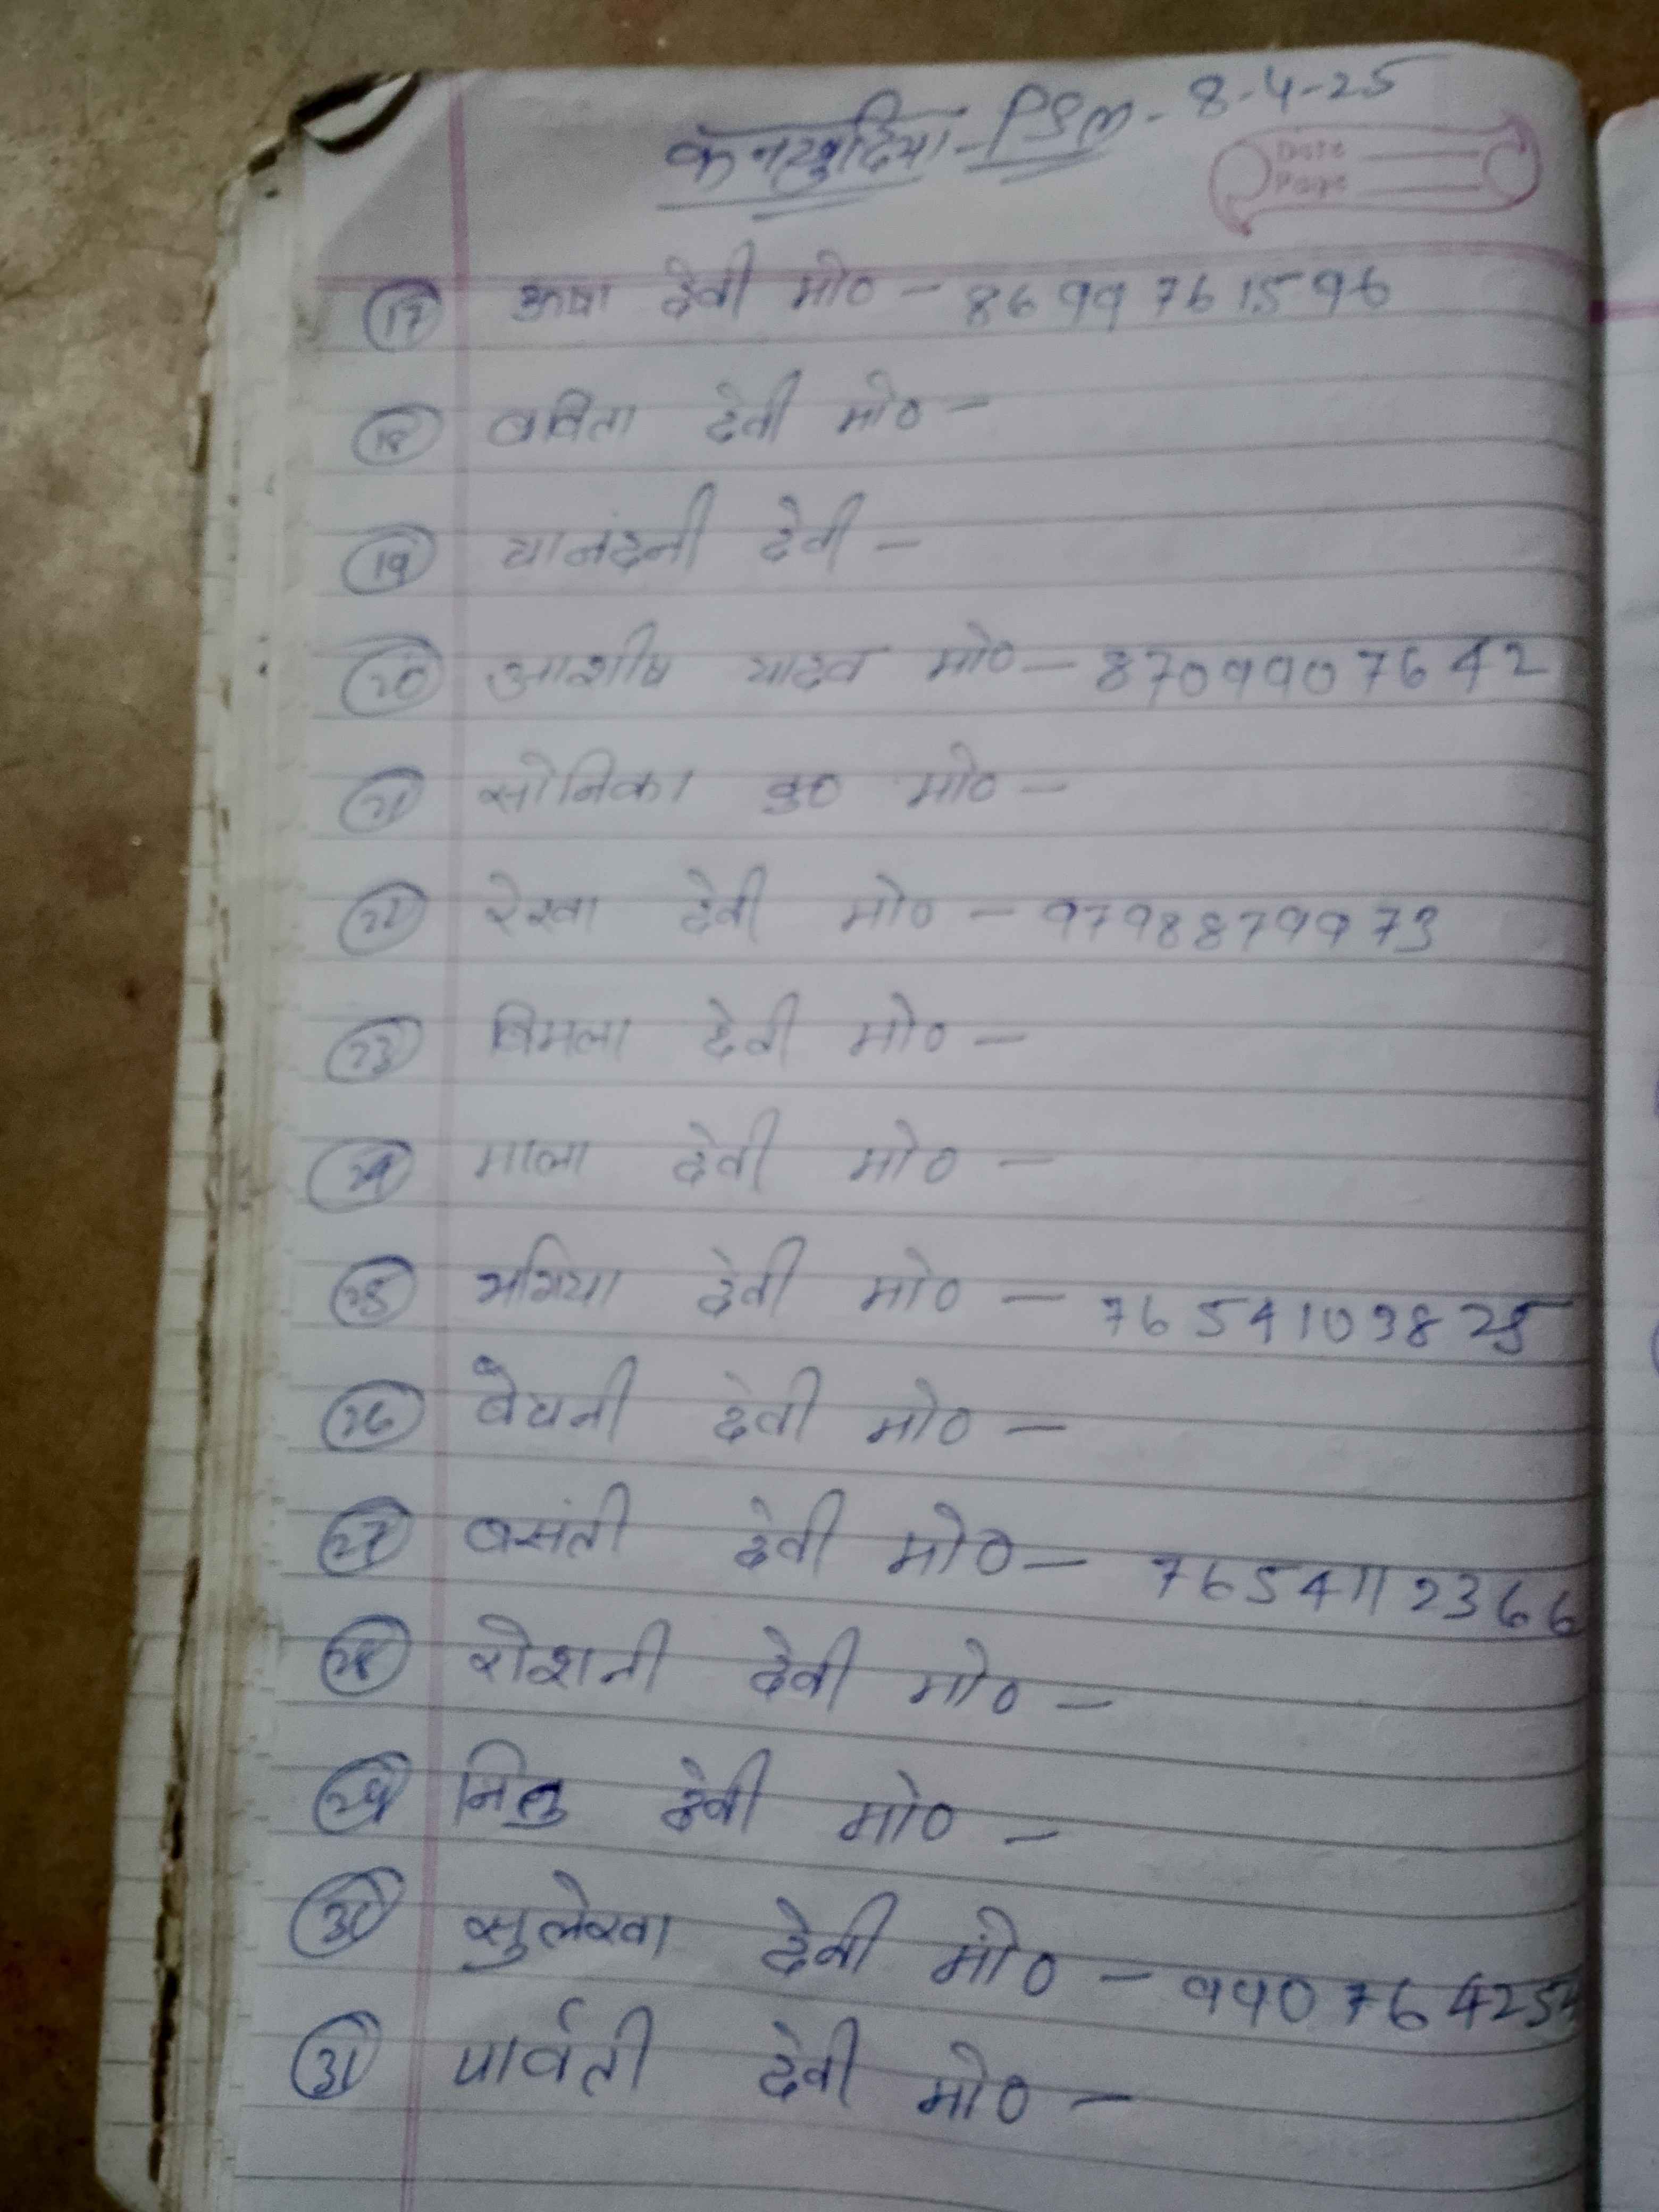 कनखुदिया - PSM - 8-4-25
Date
Page
17 आषा देवी मो० - 8699761596
18 बबिता देवी मो० -
19 चानंदनी देवी -
20 आशीष यादव मो० - 8709907642
21 सोनिका कु० मो० -
22 रेखा देवी मो० - 9798879973
23 बिमला देवी मो० -
24 माला देवी मो० -
25 भगिया देवी मो० - 7654103825
26 देवी मो० -
27 बसंती देवी मो० - 7654112366
28 रोशनी देवी मो० -
29 निलु देवी मो० -
30 सुलेखा देवी मो० -
31 पार्वती देवी मो० -